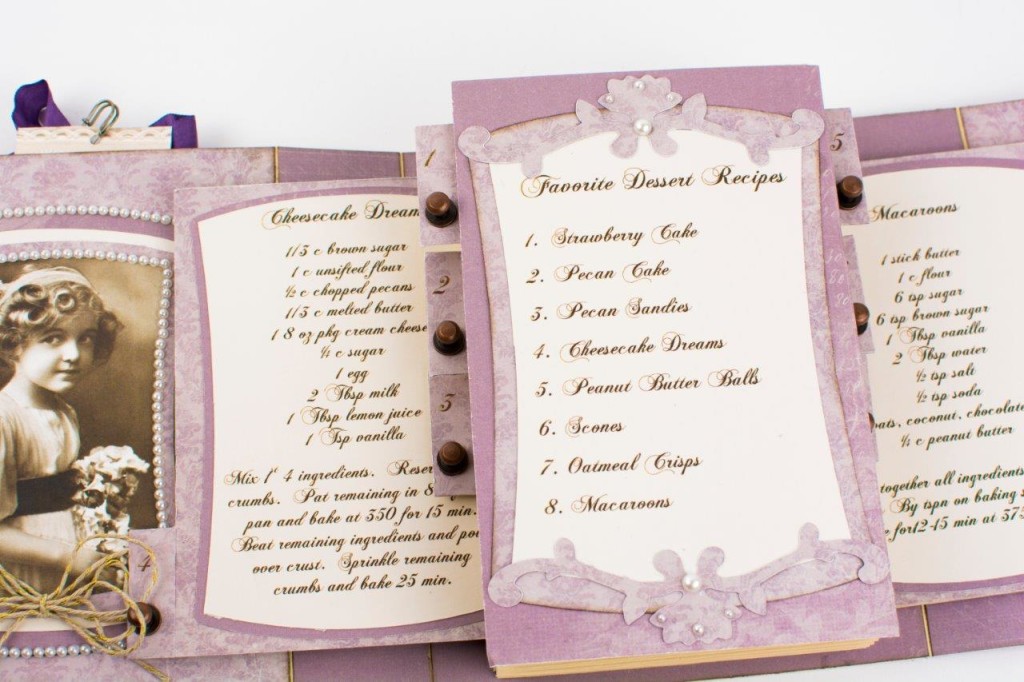 Cheesecake Dream
1/3 c brown sugar
1 c unsifted flour
½ c chopped pecans
1/3 c melted butter
1 8 oz pkg cream cheese
¼ c sugar
1 egg
2 Tbsp milk
1 Tbsp lemon juice
1 Tsp vanilla
Mix 1st 4 ingredients. Reser
crumbs. Pat remaining in 8
pan and bake at 350 for 15 min.
Beat remaining ingredients and po
over crust. Sprinkle remaining
crumbs and bake 25 min.
4
1
2
3
Favorite Dessert Recipes
1. Strawberry Cake
2. Pecan Cake
3. Pecan Sandies
4. Cheesecake Dreams
5. Peanut Butter Balls
6. Scones
7. Oatmeal Crisps
8. Macaroons
5
Macaroons
1 stick butter
1 c flour
6 tsp sugar
6 tsp brown sugar
1 Tbsp vanilla
2 Tbsp water
½ tsp salt
½ tsp soda
oats, coconut, chocolate
¼ c peanut butter
together all ingredients
By tspn on baking
for 12-15 min at 375